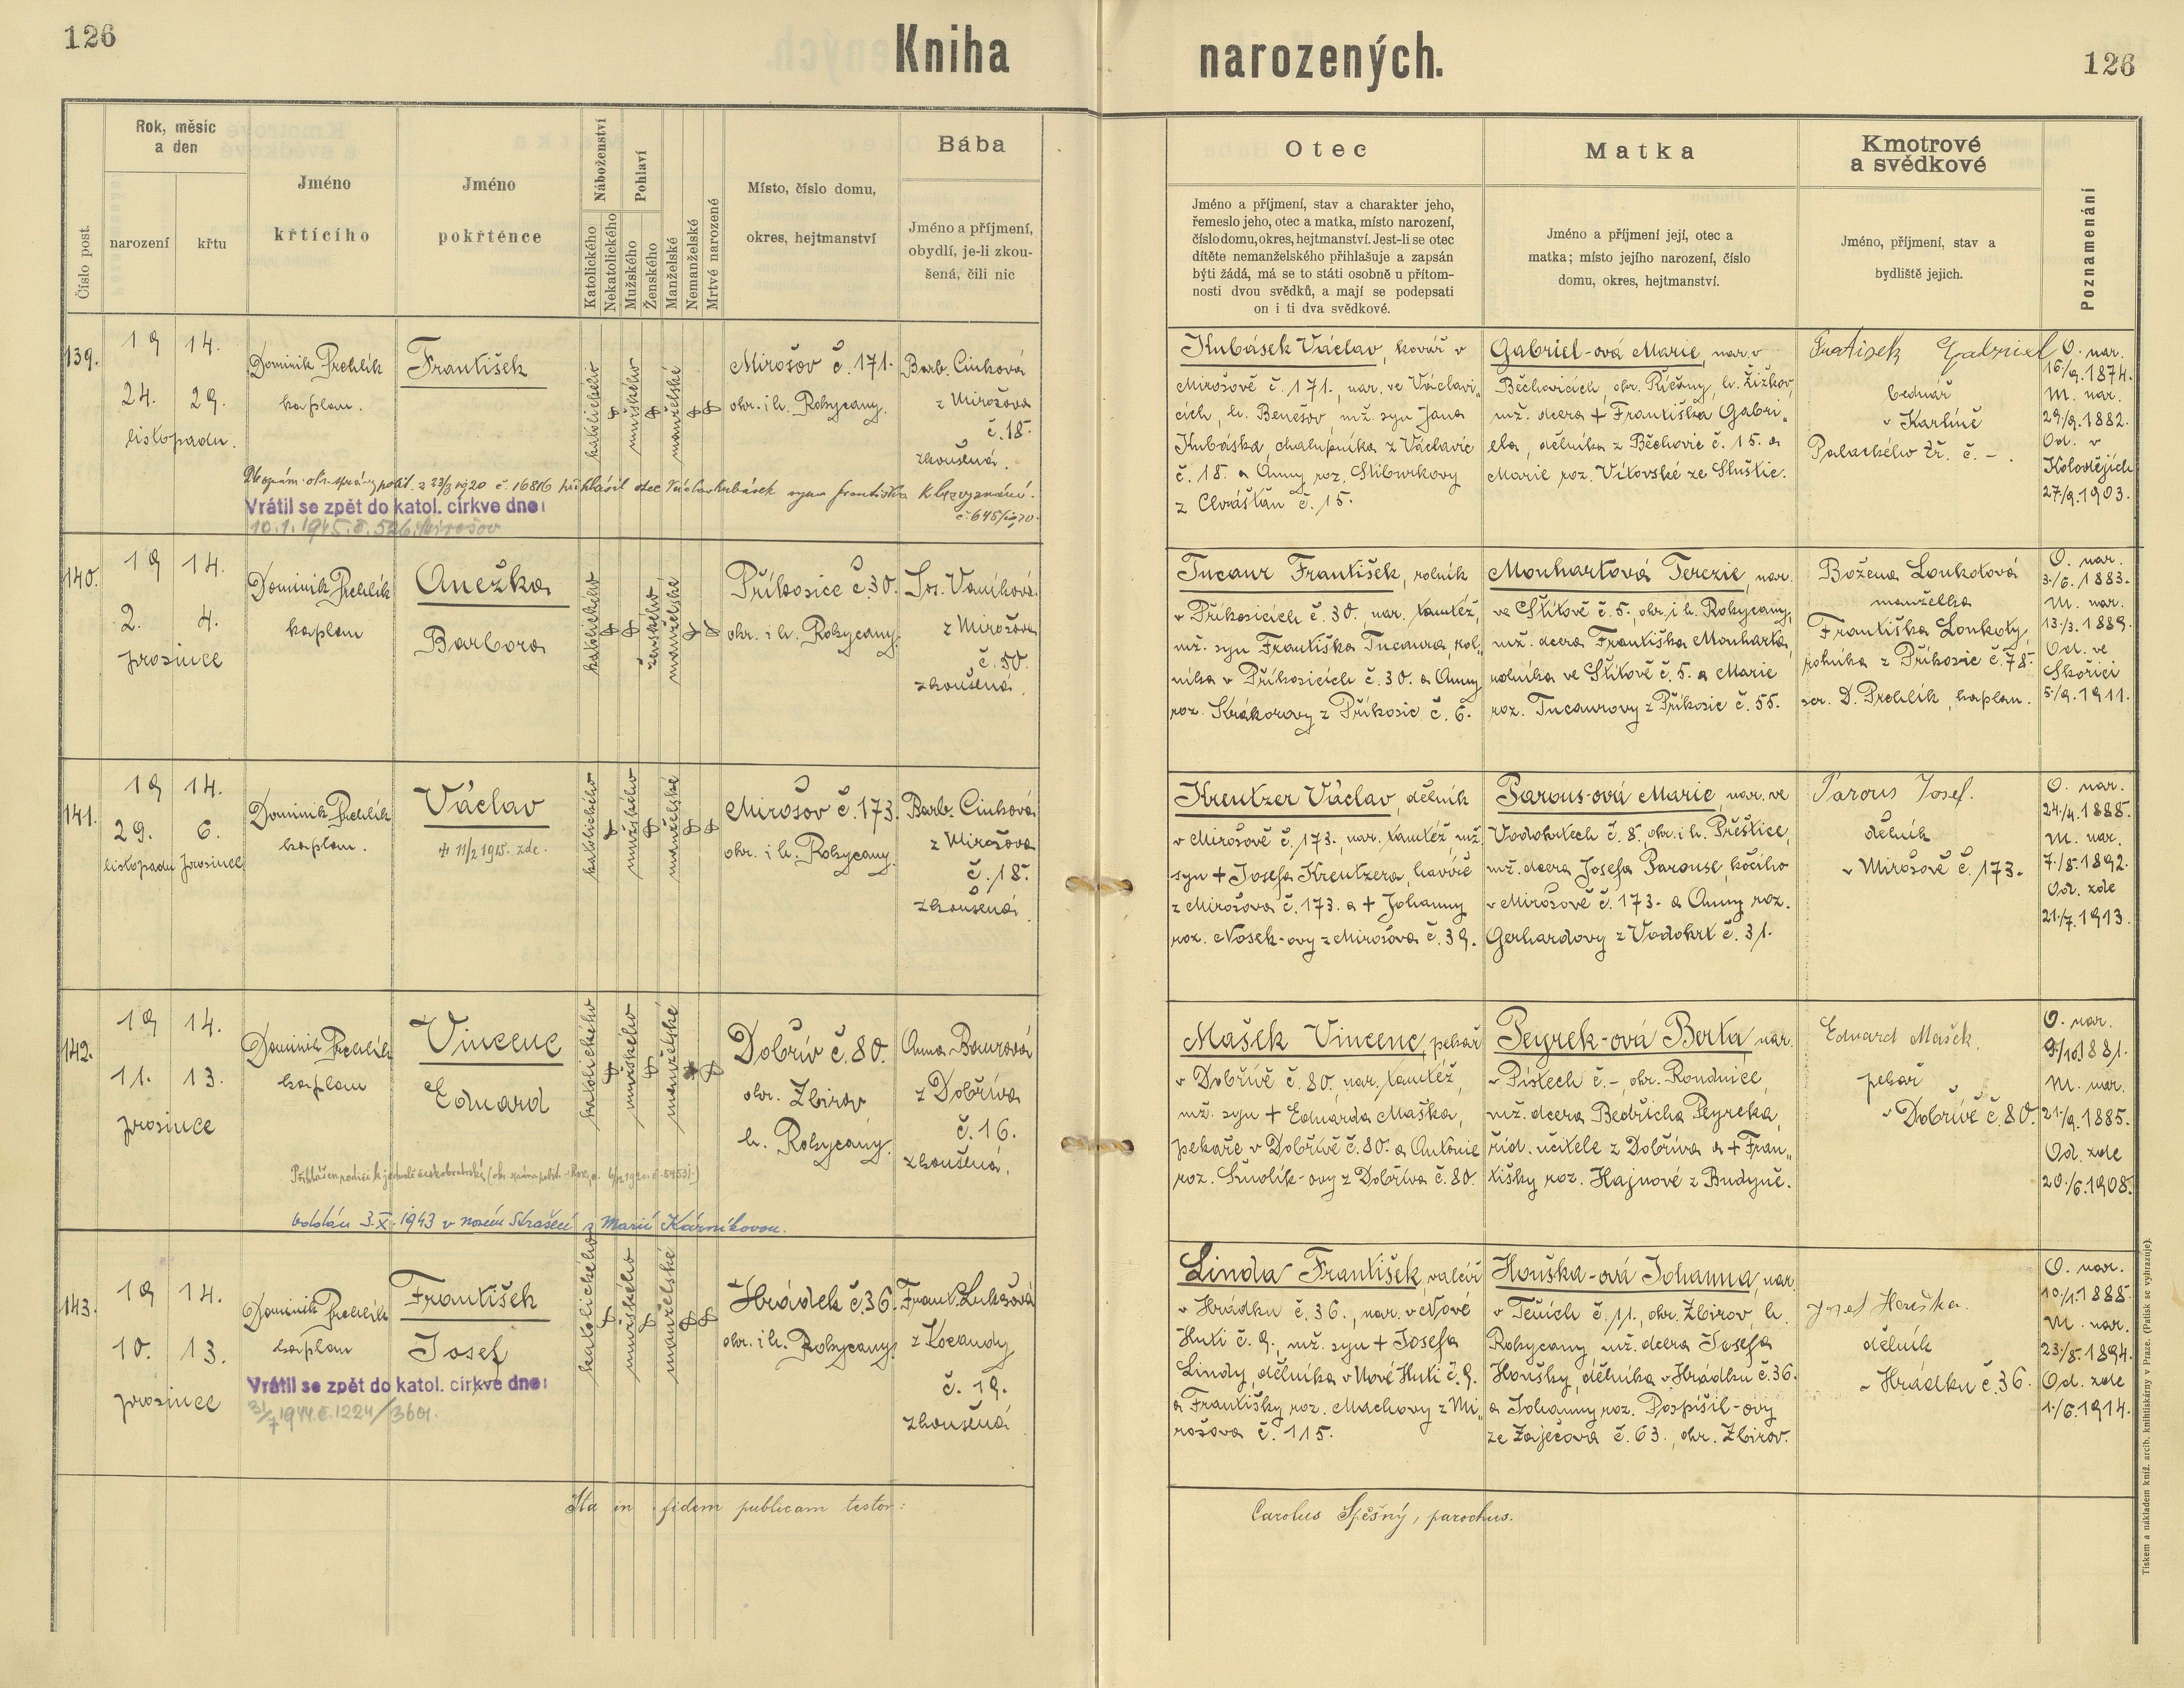 126
Kniha narozených.
126
Číslo post.
Rok, měsíc
a den
narození
křtu
Jméno
křtícího
Jméno
pokřtěnce
Náboženství
Katolického
Nekatolického
Pohlaví
Mužského
Ženského
Manželské
Nemanželské
Mrtvé narozené
Místo, číslo domu,
okres, hejtmanství
Bába
Jméno a příjmení,
obydlí, je-li zkou-
šená, čili nic
Otec
Jméno a příjmení, stav a charakter jeho,
řemeslo jeho, otec a matka, místo narození,
číslo domu, okres, hejtmanství. Jest-li se otec
dítěte nemanželského přihlašuje a zapsán
býti žádá, má se to státi osobně u přítom-
nosti dvou svědků, a mají se podepsati
on i ti dva svědkové.
Matka
Jméno a příjmení její, otec a
matka; místo jejího narození, číslo
domu, okres, hejtmanství.
Kmotrové
a svědkové
Jméno, příjmení, stav a
bydliště jejich.
Poznamenání
139.
19 14.
24. 29.
listopadu.
Dominik Prchlík
kaplan.
František
katolického
mužského
manželské
Mirošov č. 171.
okr. i h. Rokycany.
Barb. Cinková
z Mirošova
č. 18.
zkoušená.
Vrátil se zpět do katol. církve dne:
10.1.1945.č. 526.Mirošov
Kubásek Václav, kovář v
Mirošově č. 171., nar. ve Václavi„
cích, h. Benešov, mž. syn Jana
Kubáska, chalupníka z Václavic
č. 18. a Anny roz. Stiburkovy
z Chrášťan č. 15.
Gabriel-ová Marie, nar. v
Běchovicích, okr. Říčany, h. Žižkov,
mž. dcera + Františka Gabri„
ela, dělníka z Běchovic č. 15. a
Marie roz. Vítovské ze Sluštic.
František Gabriel
bednář
v Karlíně
Palackého tř. č. – .
O. nar.
16/9.1874.
M. nar.
29/9.1882.
Od. v
Kolovějích
27/9.1903.
140.
19 14.
2. 4.
prosince
Dominik Prchlík
kaplan
Anežka
Barbora
katolického
ženského
manželské
Příkosice č. 30.
okr. i h. Rokycany.
Jos. Vaníková
z Mirošova
č. 50.
zkoušená.
Tucaur František, rolník
v Příkosicích č. 30., nar. tamtéž,
mž. syn Františka Tucaura, rol„
níka v Příkosicích č. 30. a Anny
roz. Krákorovy z Příkosic č. 6.
Mouhartová Terezie, nar.
ve Štítově č. 5., okr. i h. Rokycany,
mž. dcera Františka Mouharta,
rolníka ve Štítově č. 5. a Marie
roz. Tucaurovy z Příkosic č. 55.
Božena Loukotová
manželka
Františka Loukoty,
rolníka z Příkosic č. 78.
scr. D. Prchlík, kaplan.
O. nar.
3./6. 1883.
M. nar.
13./3. 1889.
Od. ve
Skořici
5./9. 1911.
141.
19 14.
29. 6.
listopadu prosince
Dominik Prchlík
kaplan.
Václav
+ 11/2 1915. zde.
katolického
mužského
manželské
Mirošov č. 173.
okr. i h. Rokycany.
Barb. Cinková
z Mirošova
č. 18.
zkoušená.
Kreutzer Václav, dělník
v Mirošově č. 173., nar. tamtéž, mž.
syn + Josefa Kreutzera, havíře
z Mirošova č. 173. a + Johanny
roz. Nosek-ovy z Mirošova č. 39.
Parous-ová Marie, nar. ve
Vodokrtech č. 8., okr. i h. Přeštice,
mž. dcera Josefa Parouse, kočího
v Mirošově č. 173. a Anny roz.
Gerhardovy z Vodokrt č. 31.
Parous Josef.
dělník
v Mirošově č. 173.
O. nar.
24./4. 1888.
M. nar.
7./8. 1892.
Od. zde
21./7. 1913.
142.
19 14.
11. 13.
prosince
Dominik Prchlík
kaplan
Vincenc
Eduard
katolického
mužského
manželské
Dobřív č. 80.
okr. Zbirov
h. Rokycany.
Anna Bourová
z Dobříva
č. 16.
zkoušená.
oddán 3.X.1943 v Novém Strašecí s Marií Kárníkovou.
Mašek Vincenc, pekař
v Dobřívě č. 80., nar. tamtéž,
mž. syn + Eduarda Maška,
pekaře v Dobřívě č. 80. a Antonie
roz. Smolík-ovy z Dobříva č. 80.
Peyrek-ová Berta, nar.
v Pístech č. –, okr. Roudnice,
mž. dcera Bedřicha Peyreka,
říd. učitele z Dobříva a + Fran„
tišky roz. Hajnové z Budyně.
Eduard Mašek,
pekař
v Dobřívě č. 80.
O. nar.
9./10.1881.
M. nar.
21./9. 1885.
Od. zde
20./6.1908.
143.
19 14.
10. 13.
prosince
Dominik Prchlík
kaplan
František
Josef
Vrátil se zpět do katol. církve dne:
31/7 1944.č.1224/3601.
katolického
mužského
manželské
Hrádek č. 36.
okr. i h. Rokycany.
Frant. Lukšová
z Kocandy
č. 19.
zkoušená
Linda František, valcíř
v Hrádku č. 36., nar. v Nové
Huti č. 9., mž. syn + Josefa
Lindy, dělníka v Nové Huti č. 9.
a Františky roz. Machovy z Mi„
rošova č. 115.
Houška-ová Johanna, nar.
v Těních č. 11., okr. Zbirov, h.
Rokycany mž. dcera Josefa
Houšky, dělníka v Hrádku č. 36.
a Johanny roz. Pospíšil-ovy
ze Zaječova č. 63., okr. Zbirov.
Josef Houška.
dělník
v Hrádku č. 36.
O. nar.
10./1.1888.
M. nar.
23./8. 1894.
Od. zde
1./6.1914.
Ita in fidem publicam testor:
Carolus Spěšný, parochus.
Tiskem a nákladem kníž. arcib. knihtiskárny v Praze. (Patisk se vyhrazuje).